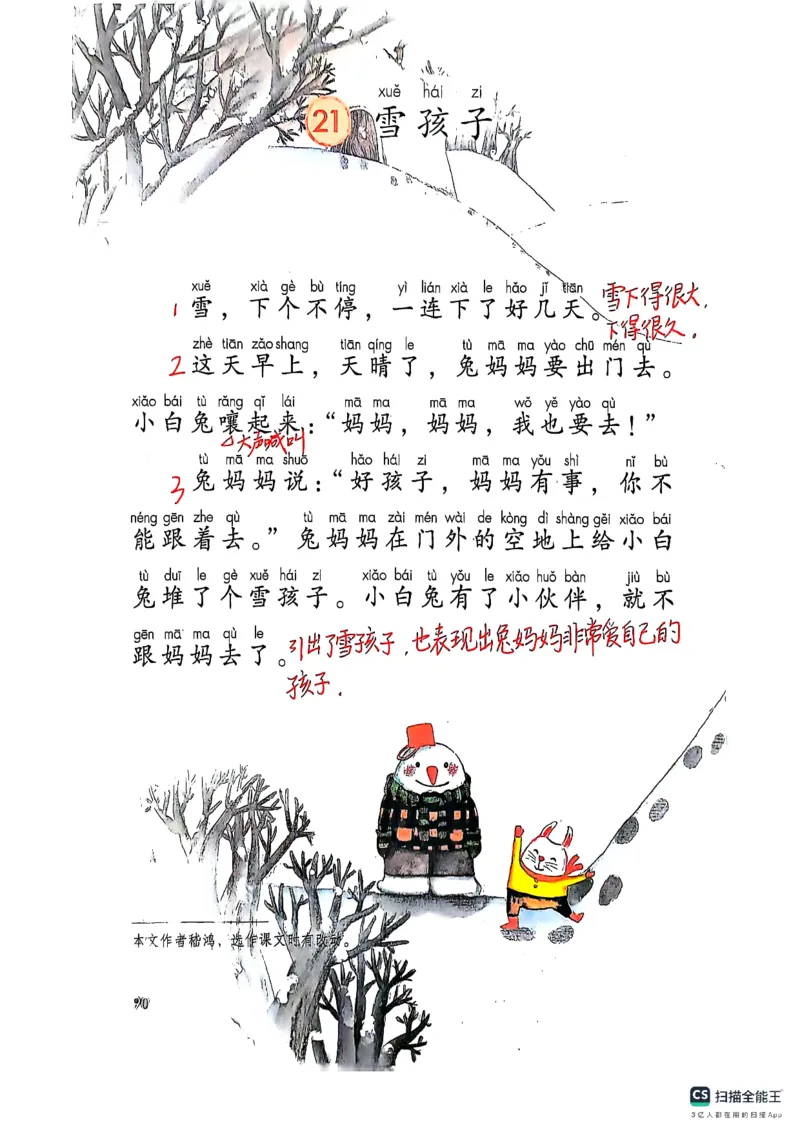 xuě hái zi
21 雪孩子
xuě xià gè bù tíng yì lián xià le hǎo jǐ tiān
1 雪，下个不停，一连下了好几天。雪下得很大，
下得很久．
zhè tiān zǎo shang tiān qíng le tù mā ma yào chū mén qù
2 这天早上，天晴了，兔妈妈要出门去。
xiǎo bái tù rǎng qǐ lái mā ma mā ma wǒ yě yào qù
小白兔嚷起来：“妈妈，妈妈，我也要去！”
大声喊叫
tù mā ma shuō hǎo hái zi mā ma yǒu shì nǐ bù
3 兔妈妈说：“好孩子，妈妈有事，你不
néng gēn zhe qù tù mā ma zài mén wài de kòng dì shàng gěi xiǎo bái
能跟着去。”兔妈妈在门外的空地上给小白
tù duī le gè xuě hái zi xiǎo bái tù yǒu le xiǎo huǒ bàn jiù bù
兔堆了个雪孩子。小白兔有了小伙伴，就不
gēn mā ma qù le
跟妈妈去了。引出了雪孩子，也表现出兔妈妈非常爱自己的
孩子．
本文作者嵇鸿，选作课文时有改动。
90
CS 扫描全能王
3亿人都在用的扫描App